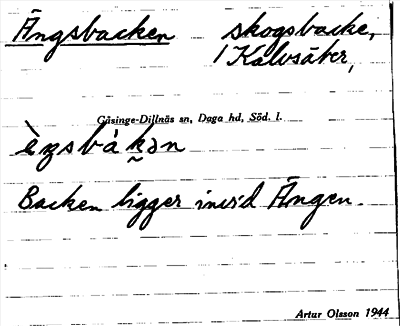 Ängsbacken skogsbacke,
Kalvsäter,
Gåsinge-Dillnäs sn, Daga hd, Söd. l.
Backen ligger invid Ängen.
Artur Olsson 1944